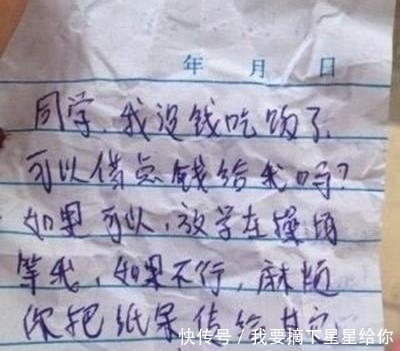 年 月 日
同学、我没钱吃饭了、
可以借点钱给我吗?
如果可以,放学在操场
等我,如果不行,麻烦
你把纸条传给其它
快传号/我要摘下星星给你